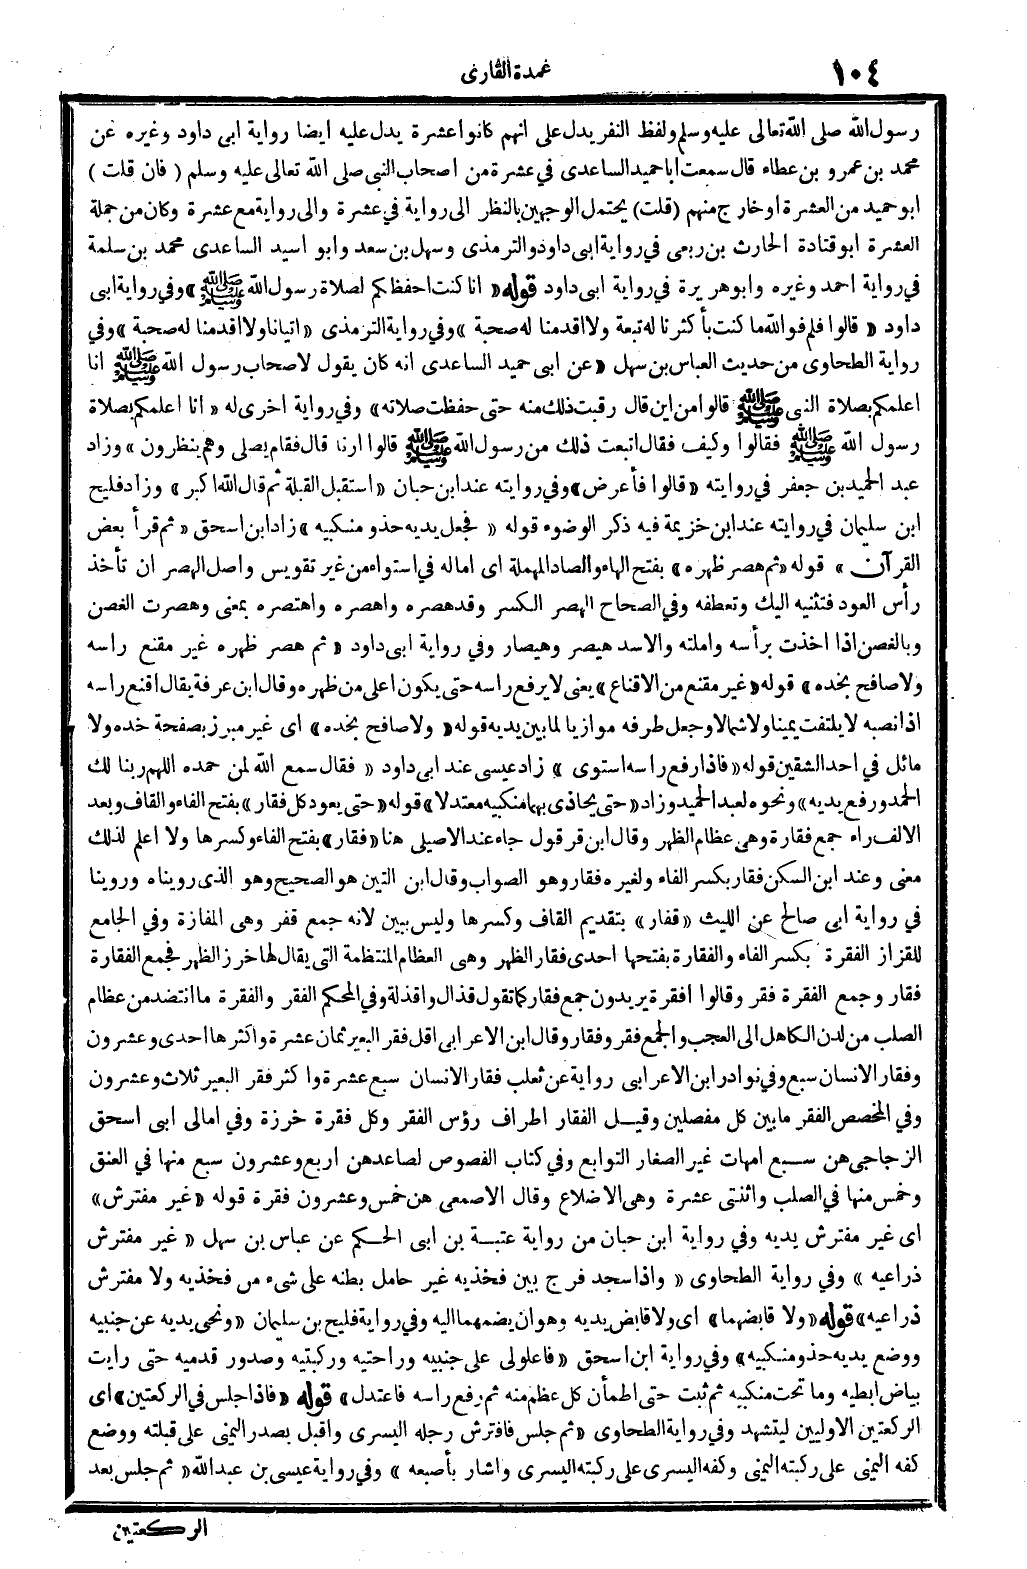 ١٠٤
عمدة القارى
رسول الله صلى الله تعالى عليه وسلم ولفظ النفر يدل على انهم كانوا عشرة يدل عليه ايضا رواية ابى داود وغيره عن
محمد بن عمرو بن عطاء قال سمعت ابا حميد الساعدى في عشرة من اصحاب النبى صلى الله تعالى عليه وسلم ( فان قلت )
ابو حميد من العشرة او خارج منهم (قلت) يحتمل الوجهين بالنظر الى رواية في عشرة والى رواية مع عشرة وكان من جملة
العشرة ابو قتادة الحارث بن ربعى في رواية ابى داود والترمذى وسهل بن سعد وابو اسيد الساعدى محمد بن سلمة
في رواية احمد وغيره وابو هريرة في رواية ابى داود قوله « انا كنت احفظكم لصلاة رسول الله ﷺ » وفي رواية ابى
داود « قالوا فلم فوالله ما كنت بأكثرنا له تبعة ولا اقدمنا له صحبة » وفي رواية الترمذى « اتيانا ولا اقدمنا له صحبة » وفي
رواية الطحاوى من حديث العباس بن سهل « عن ابى حميد الساعدى انه كان يقول لاصحاب رسول الله ﷺ انا
اعلمكم بصلاة النبى ﷺ قالوا من اين قال رقبت ذلك منه حتى حفظت صلاته » وفي رواية اخرى له « انا اعلمكم بصلاة
رسول الله ﷺ فقالوا وكيف فقال اتبعت ذلك من رسول الله ﷺ قالوا ارنا قال فقام يصلى وهم ينظرون » وزاد
عبد الحميد بن جعفر في روايته « قالوا فأعرض » وفي روايته عند ابن حبان « استقبل القبلة ثم قال الله اكبر » وزاد فليح
ابن سليمان في روايته عند ابن خزيمة فيه ذكر الوضوء قوله « فجعل يديه حذو منكبيه » زاد ابن اسحق « ثم قرأ بعض
القرآن » قوله « ثم هصر ظهره » بفتح الهاء والصاد المهملة اى اماله في استواء من غير تقويس واصل الهصر ان تأخذ
رأس العود فتثنيه اليك وتعطفه وفي الصحاح الهصر الكسر وقد هصره واهصره واهتصره بمعنى وهصرت الغصن
وبالغصن اذا اخذت برأسه واملته والاسد هيصر وهيصار وفي رواية ابى داود « ثم هصر ظهره غير مقنع راسه
ولا صافح بخده » قوله « غير مقنع من الاقناع » يعنى لا يرفع راسه حتى يكون اعلى من ظهره وقال ابن عرفة يقال اقنع راسه
اذا نصبه لا يلتفت يمينا ولا شمالا وجعل طرفه موازيا لما بين يديه قوله « ولا صافح بخده » اى غير مبرز بصفحة خده ولا
مائل في احد الشقين قوله « فاذا رفع راسه استوى » زاد عيسى عند ابى داود « فقال سمع الله لمن حمده اللهم ربنا لك
الحمد ورفع يديه » ونحوه لعبد الحميد وزاد « حتى يحاذى بهما منكبيه معتدلا » قوله « حتى يعود كل فقار » بفتح الفاء والقاف وبعد
الالف راء جمع فقارة وهى عظام الظهر وقال ابن قرقول جاء عند الاصيلى هنا « فقار » بفتح الفاء وكسرها ولا اعلم لذلك
معنى وعند ابن السكن فقار بكسر الفاء ولغيره فقار وهو الصواب وقال ابن التين هو الصحيح وهو الذى رويناه وروينا
في رواية ابى صالح عن الليث « قفار » بتقديم القاف وكسرها وليس ببين لانه جمع قفر وهى المفازة وفي الجامع
للقزاز الفقرة بكسر الفاء والفقارة بفتحها احدى فقار الظهر وهى العظام المنتظمة التى يقال لها خرز الظهر فجمع الفقارة
فقار وجمع الفقرة فقر وقالوا افقرة يريدون جمع فقار كما تقول قذال واقذلة وفي المحكم الفقر والفقرة ما انتضد من عظام
الصلب من لدن الكاهل الى العجب والجمع فقر وفقار وقال ابن الاعرابى اقل فقر البعير ثمان عشرة واكثرها احدى وعشرون
وفقار الانسان سبع وفي نوادر ابن الاعرابى رواية عن ثعلب فقار الانسان سبع عشرة واكثر فقر البعير ثلاث وعشرون
وفي المخصص الفقر ما بين كل مفصلين وقيل الفقار اطراف رؤس الفقر وكل فقرة خرزة وفي امالى ابى اسحق
الزجاجى هن سبع امهات غير الصغار التوابع وفي كتاب الفصوص لصاعد هن اربع وعشرون سبع منها في العنق
وخمس منها في الصلب واثنتى عشرة وهى الاضلاع وقال الاصمعى هن خمس وعشرون فقرة قوله « غير مفترش »
اى غير مفترش يديه وفي رواية ابن حبان من رواية عتبة بن ابى الحكم عن عباس بن سهل « غير مفترش
ذراعيه » وفي رواية الطحاوى « واذا سجد فرج بين فخذيه غير حامل بطنه على شىء من فخذيه ولا مفترش
ذراعيه » قوله « ولا قابضهما » اى ولا قابض يديه وهو ان يضمهما اليه وفي رواية فليح بن سليمان « ونحى يديه عن جنبيه
ووضع يديه حذو منكبيه » وفي رواية ابن اسحق « فاعلولى على جنبيه وراحتيه وركبتيه وصدور قدميه حتى رايت
بياض ابطيه وما تحت منكبيه ثم ثبت حتى اطمأن كل عظم منه ثم رفع راسه فاعتدل » قوله « فاذا جلس في الركعتين » اى
الركعتين الاوليين ليتشهد وفي رواية الطحاوى « ثم جلس فافترش رجله اليسرى واقبل بصدر اليمنى على قبلته ووضع
كفه اليمنى على ركبته اليمنى وكفه اليسرى على ركبته اليسرى واشار بأصبعه » وفي رواية عيسى بن عبد الله « ثم جلس بعد
الركعتين